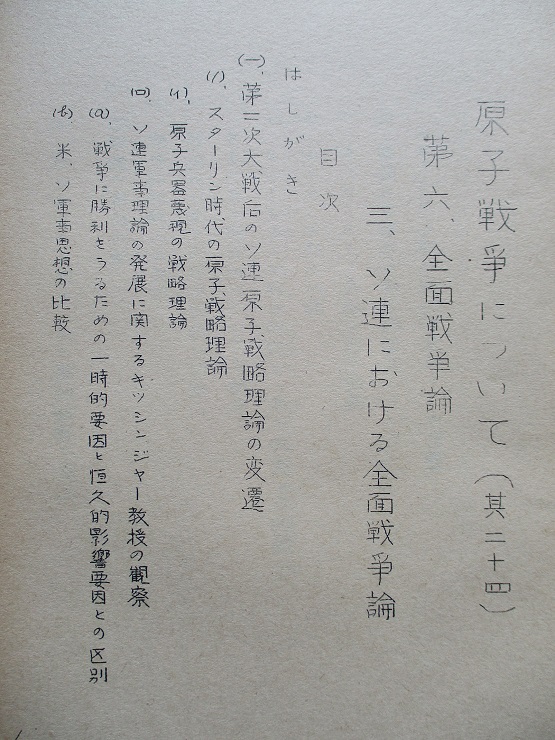 原子戦争について(其二十四)
第六、全面戦争論
三、ソ連における全面戦争論
目次
はしがき
(一)、第二次大戦后のソ連原子戦略理論の変遷
(1)、スターリン時代の原子戦略理論
(イ)、原子兵器蔑視の戦略理論
(ロ)、ソ連軍事理論の発展に関するキッシンジャー教授の観察
(a)、戦争に勝利をうるための一時的要因と恒久的影響要因との区別
(b)、米、ソ軍事思想の比較